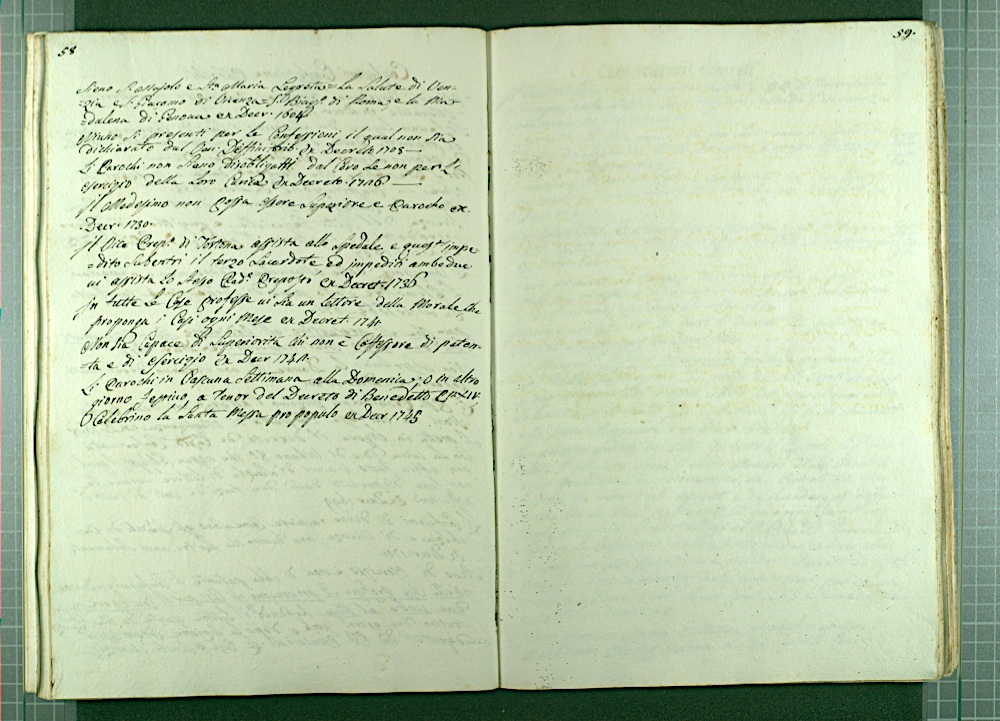 58
siano S. Majolo e Sta Maria Segreta = La Salute di Vene-
zia e S. Giacomo di Vicenza = S. Biag.º di Roma e la Ma-
dalena di Genova ex Decr. 1604
Niuno si presenti per le Confessioni, il qual non sia
dichiarato dal Ven. Deffinit. ex Decreto 1705
Li Parochi non siano disobligatti dal Coro se non per l'
esercizio della loro Carica ex Decreto. 1706
Il Medesimo non possa essere Superiore e Parocho ex
Decr. 1730.
Il Vice Prep.º di Tortona assista allo Spedale e quest' impe
dito subentri il terzo Sacerdote ed impediti ambedue
vi assista lo stesso Pad.e Preposto ex Decret. 1736
In tutte le Case professe vi sia un Lettore della Morale, che
proponga i Casi ogni Mese ex Decret. 174
Non sia Capace di Superiorità chi non è Confessore di paten-
ta e di esercizio ex Decr 174
Li Parochi in Ciascuna Settimana alla Domenica, o in altro
giorno festivo, a tenor del Decreto di Benedetto PP. XIV.
Celebrino la Santa Messa pro populo ex Decr 1745
59.